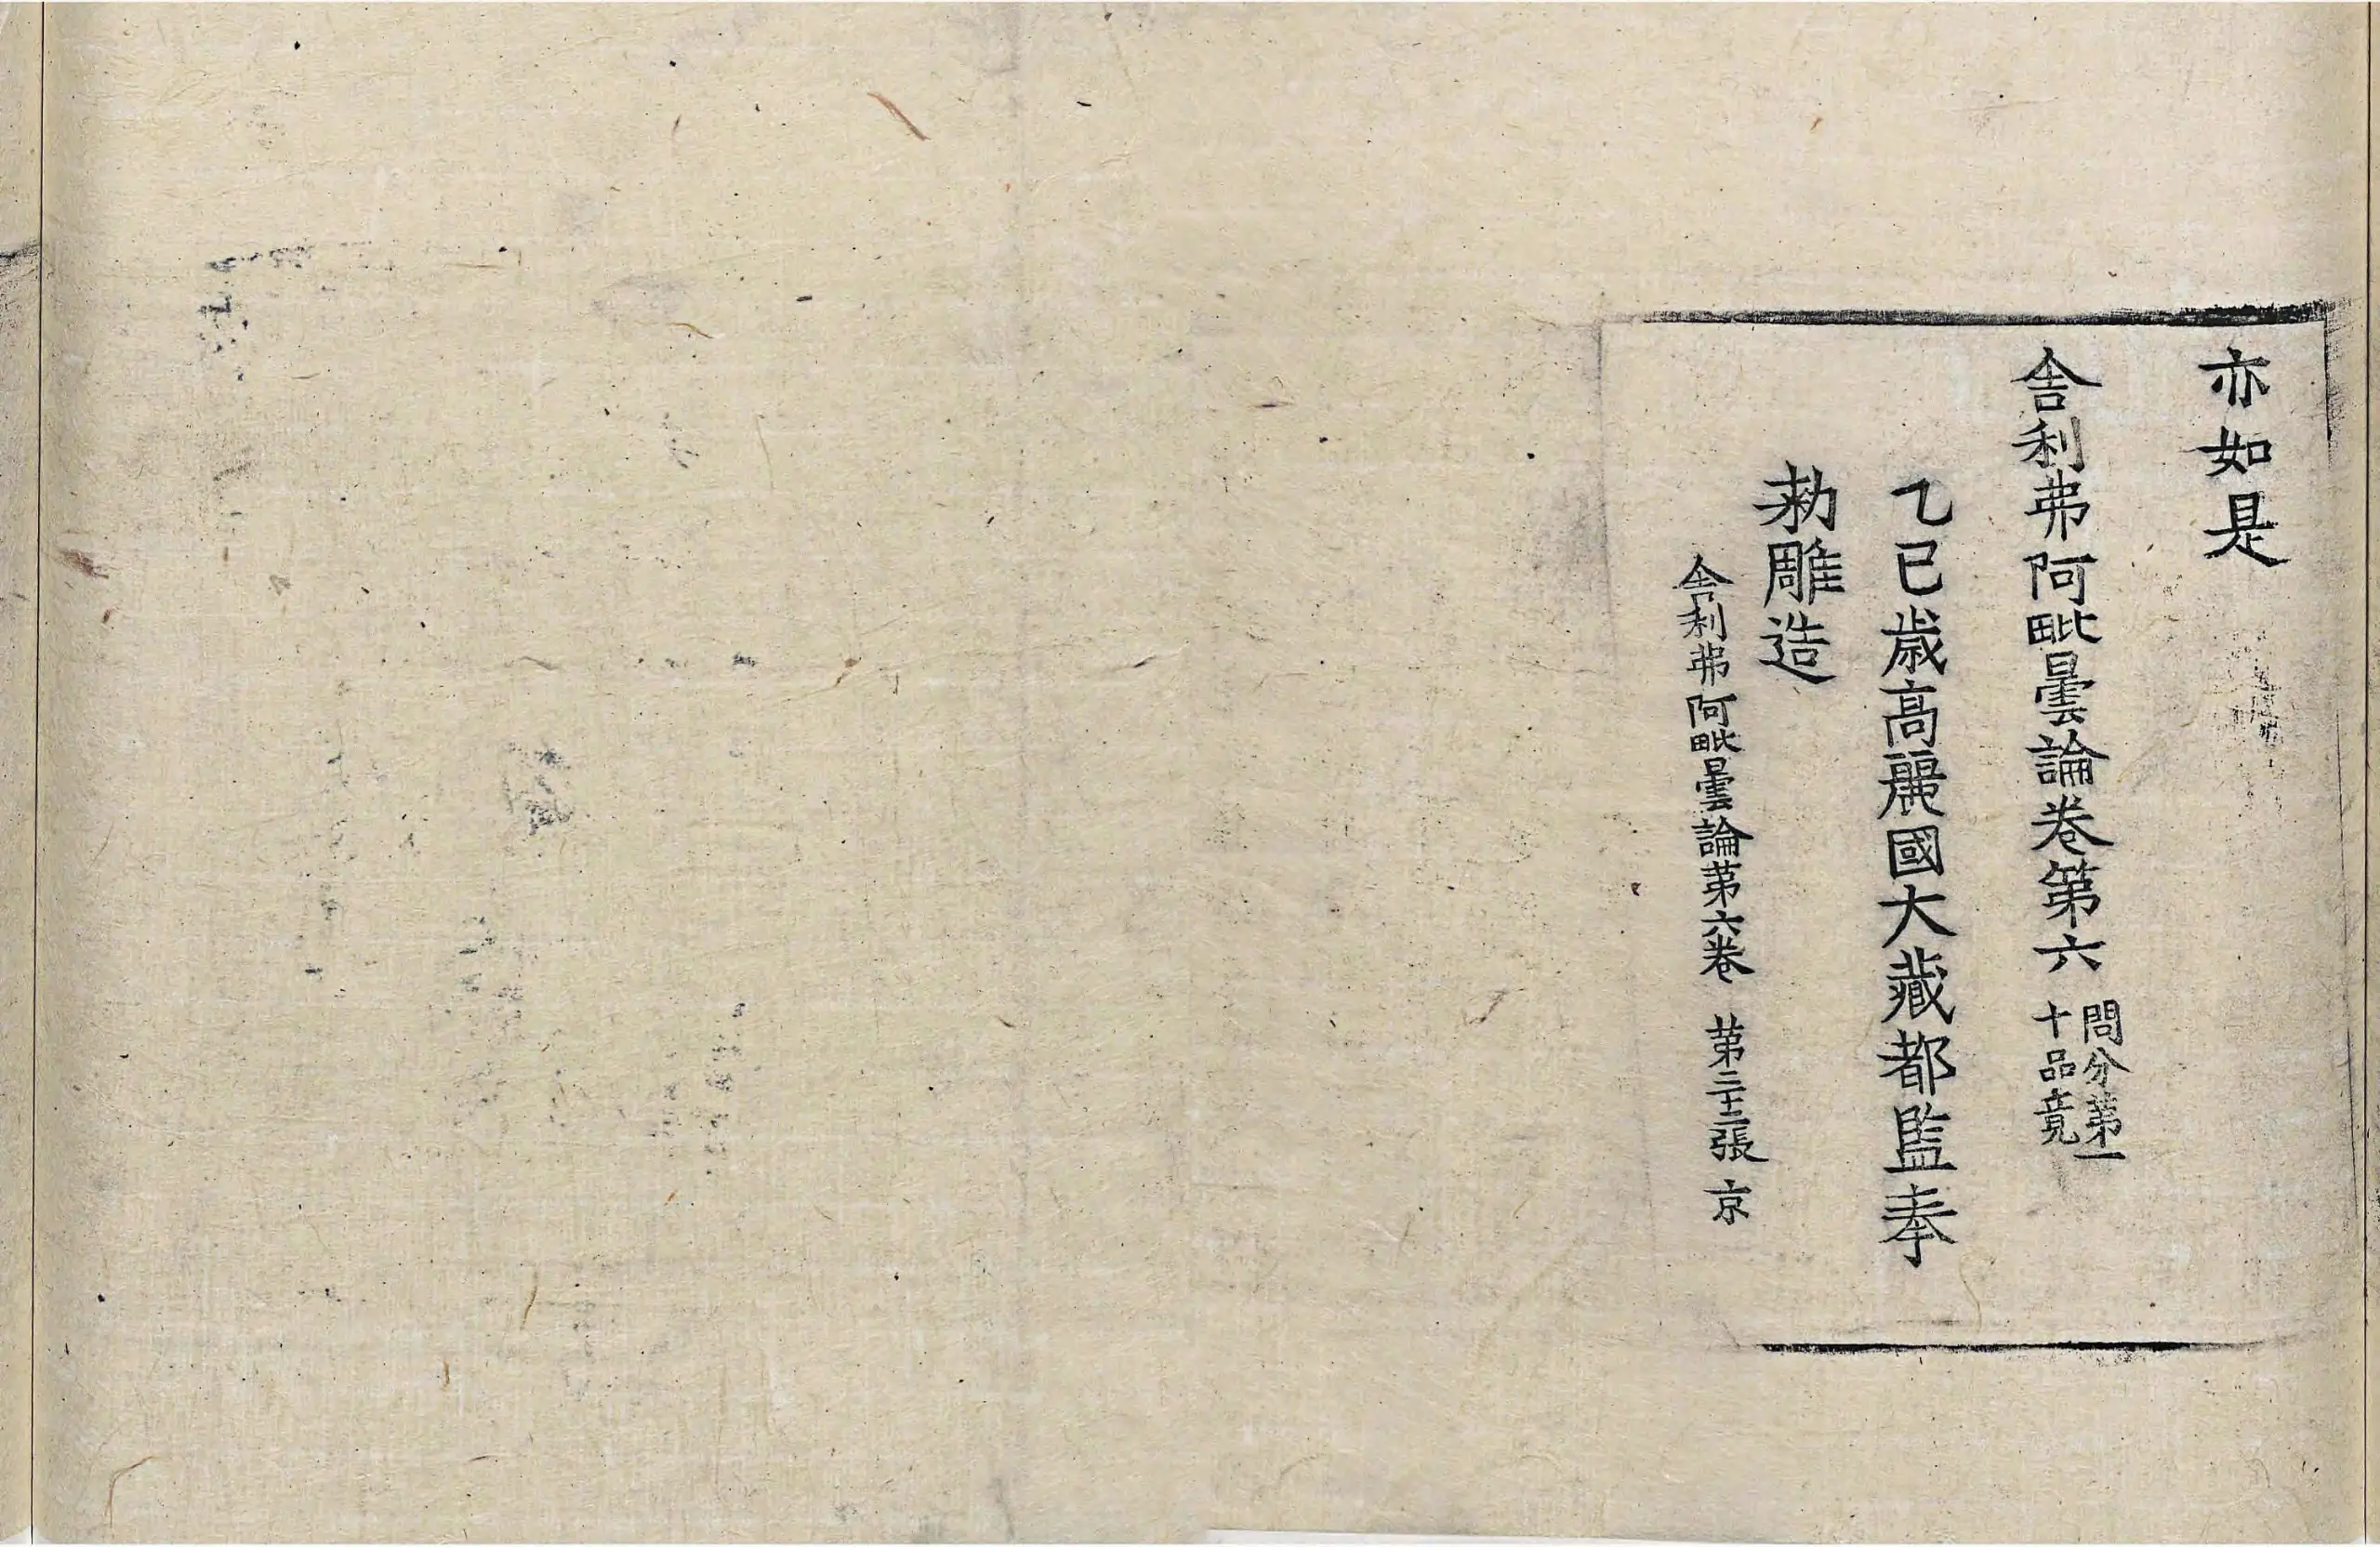 亦如是
舍利弗阿毗曇論卷第六 問分第一
十品竟
乙巳歲高麗國大藏都監奉
勑雕造
舍利弗阿毗曇論第六卷 第二十二張 京